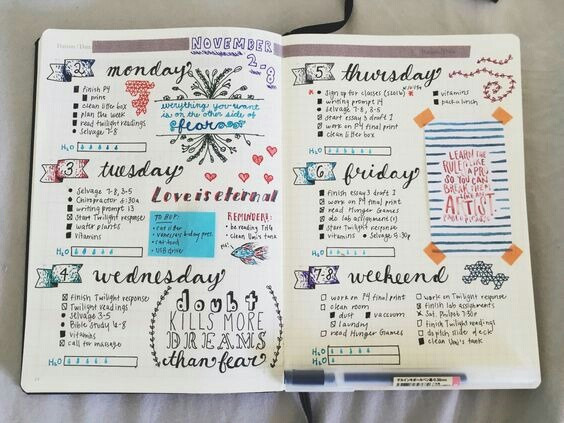 NOVEMBER
2-8
2
monday
finish P4
print
clean litter box
plan the week
read twilight readings
Selvage 7-8
everything you want
is on the other side of
fear
H2O
3
tuesday
Selvage 7-8, 3-5
Chiropractor 4:30a
writing prompt 13
Start Twilight response
water plants
vitamins
H2O
Love is eternal
TO BUY:
cat litter
vanessa's bday pres.
cat food
USB drive
REMINDERS:
be reading
clean Uni's tank
4
wednesday
finish Twilight response
Twilight readings
Selvage 3-5
Bible Study 6-8
vitamins
call for massage
H2O
doubt
KILLS MORE
DREAMS
than fear
5
thursday
Sign up for classes
writing prompt 14
Selvage 7-8, 3-5
start essay 3 draft 1
work on P4 final print
clean litter box
vitamins
pack a lunch
H2O
6
friday
finish essay 3 draft 1
work on P4 final print
read Hunger Games
do lab assignments
start Twilight response
vitamins
Selvage
H2O
LEARN THE
RULES LIKE
A PRO
SO YOU CAN
BREAK THEM
LIKE AN
ARTIST
7-8
weekend
work on P4 final print
clean room
dust
vaccuum
laundry
read Hunger Games
work on Twilight response
finish lab assignments
finish Twilight readings
clean Uni's tank
H2O
H2O